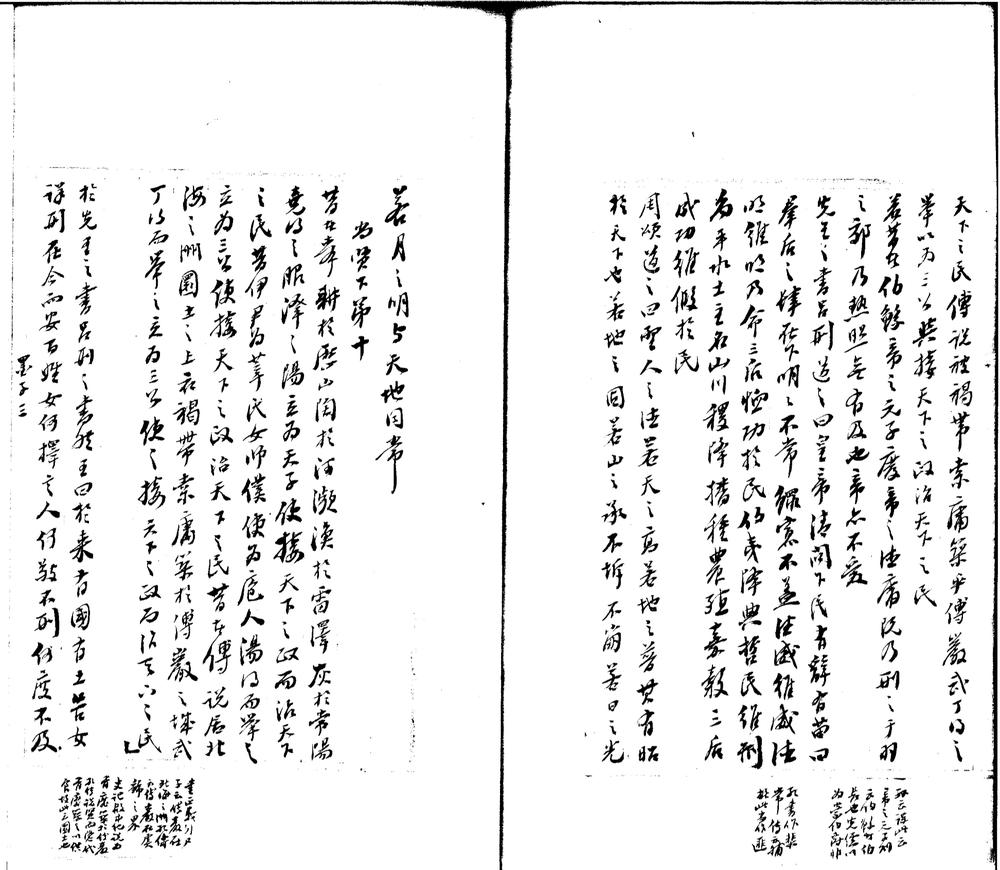 天下之民傅說被褐帶索庸築乎傅巖武丁得之
舉以為三公與接天下之政治天下之民
若昔者伯鯀帝之元子廢帝之德庸既乃刑之于羽
之郭乃熱照無有及也帝亦不愛
先王之書呂刑道之曰皇帝清問下民有辭有苗曰
羣后之肆在下明明不常鰥寡不蓋德威維威德
明維明乃命三后恤功於民伯夷降典哲民維刑
禹平水土主名山川稷降播種農殖嘉穀三后
成功維假於民
周頌道之曰聖人之德若天之高若地之普其有昭
於天下也若地之固若山之承不坼不崩若日之光
若月之明與天地同常
尚賢下第十
昔者舜耕於歷山陶於河瀕漁於雷澤灰於常陽
堯得之服澤之陽立為天子使接天下之政而治天下
之民昔伊尹為莘氏女師僕使為庖人湯得而舉之
立為三公使接天下之政治天下之民昔者傅說居北
海之洲圜土之上衣褐帶索庸築於傅巖之城武
丁得而舉之立為三公使之接天下之政而治天下之民
於先王之書呂刑之書然王曰於來有國有土告女
訟刑在今而安百姓女何擇言人何敬不刑何度不及
墨子三